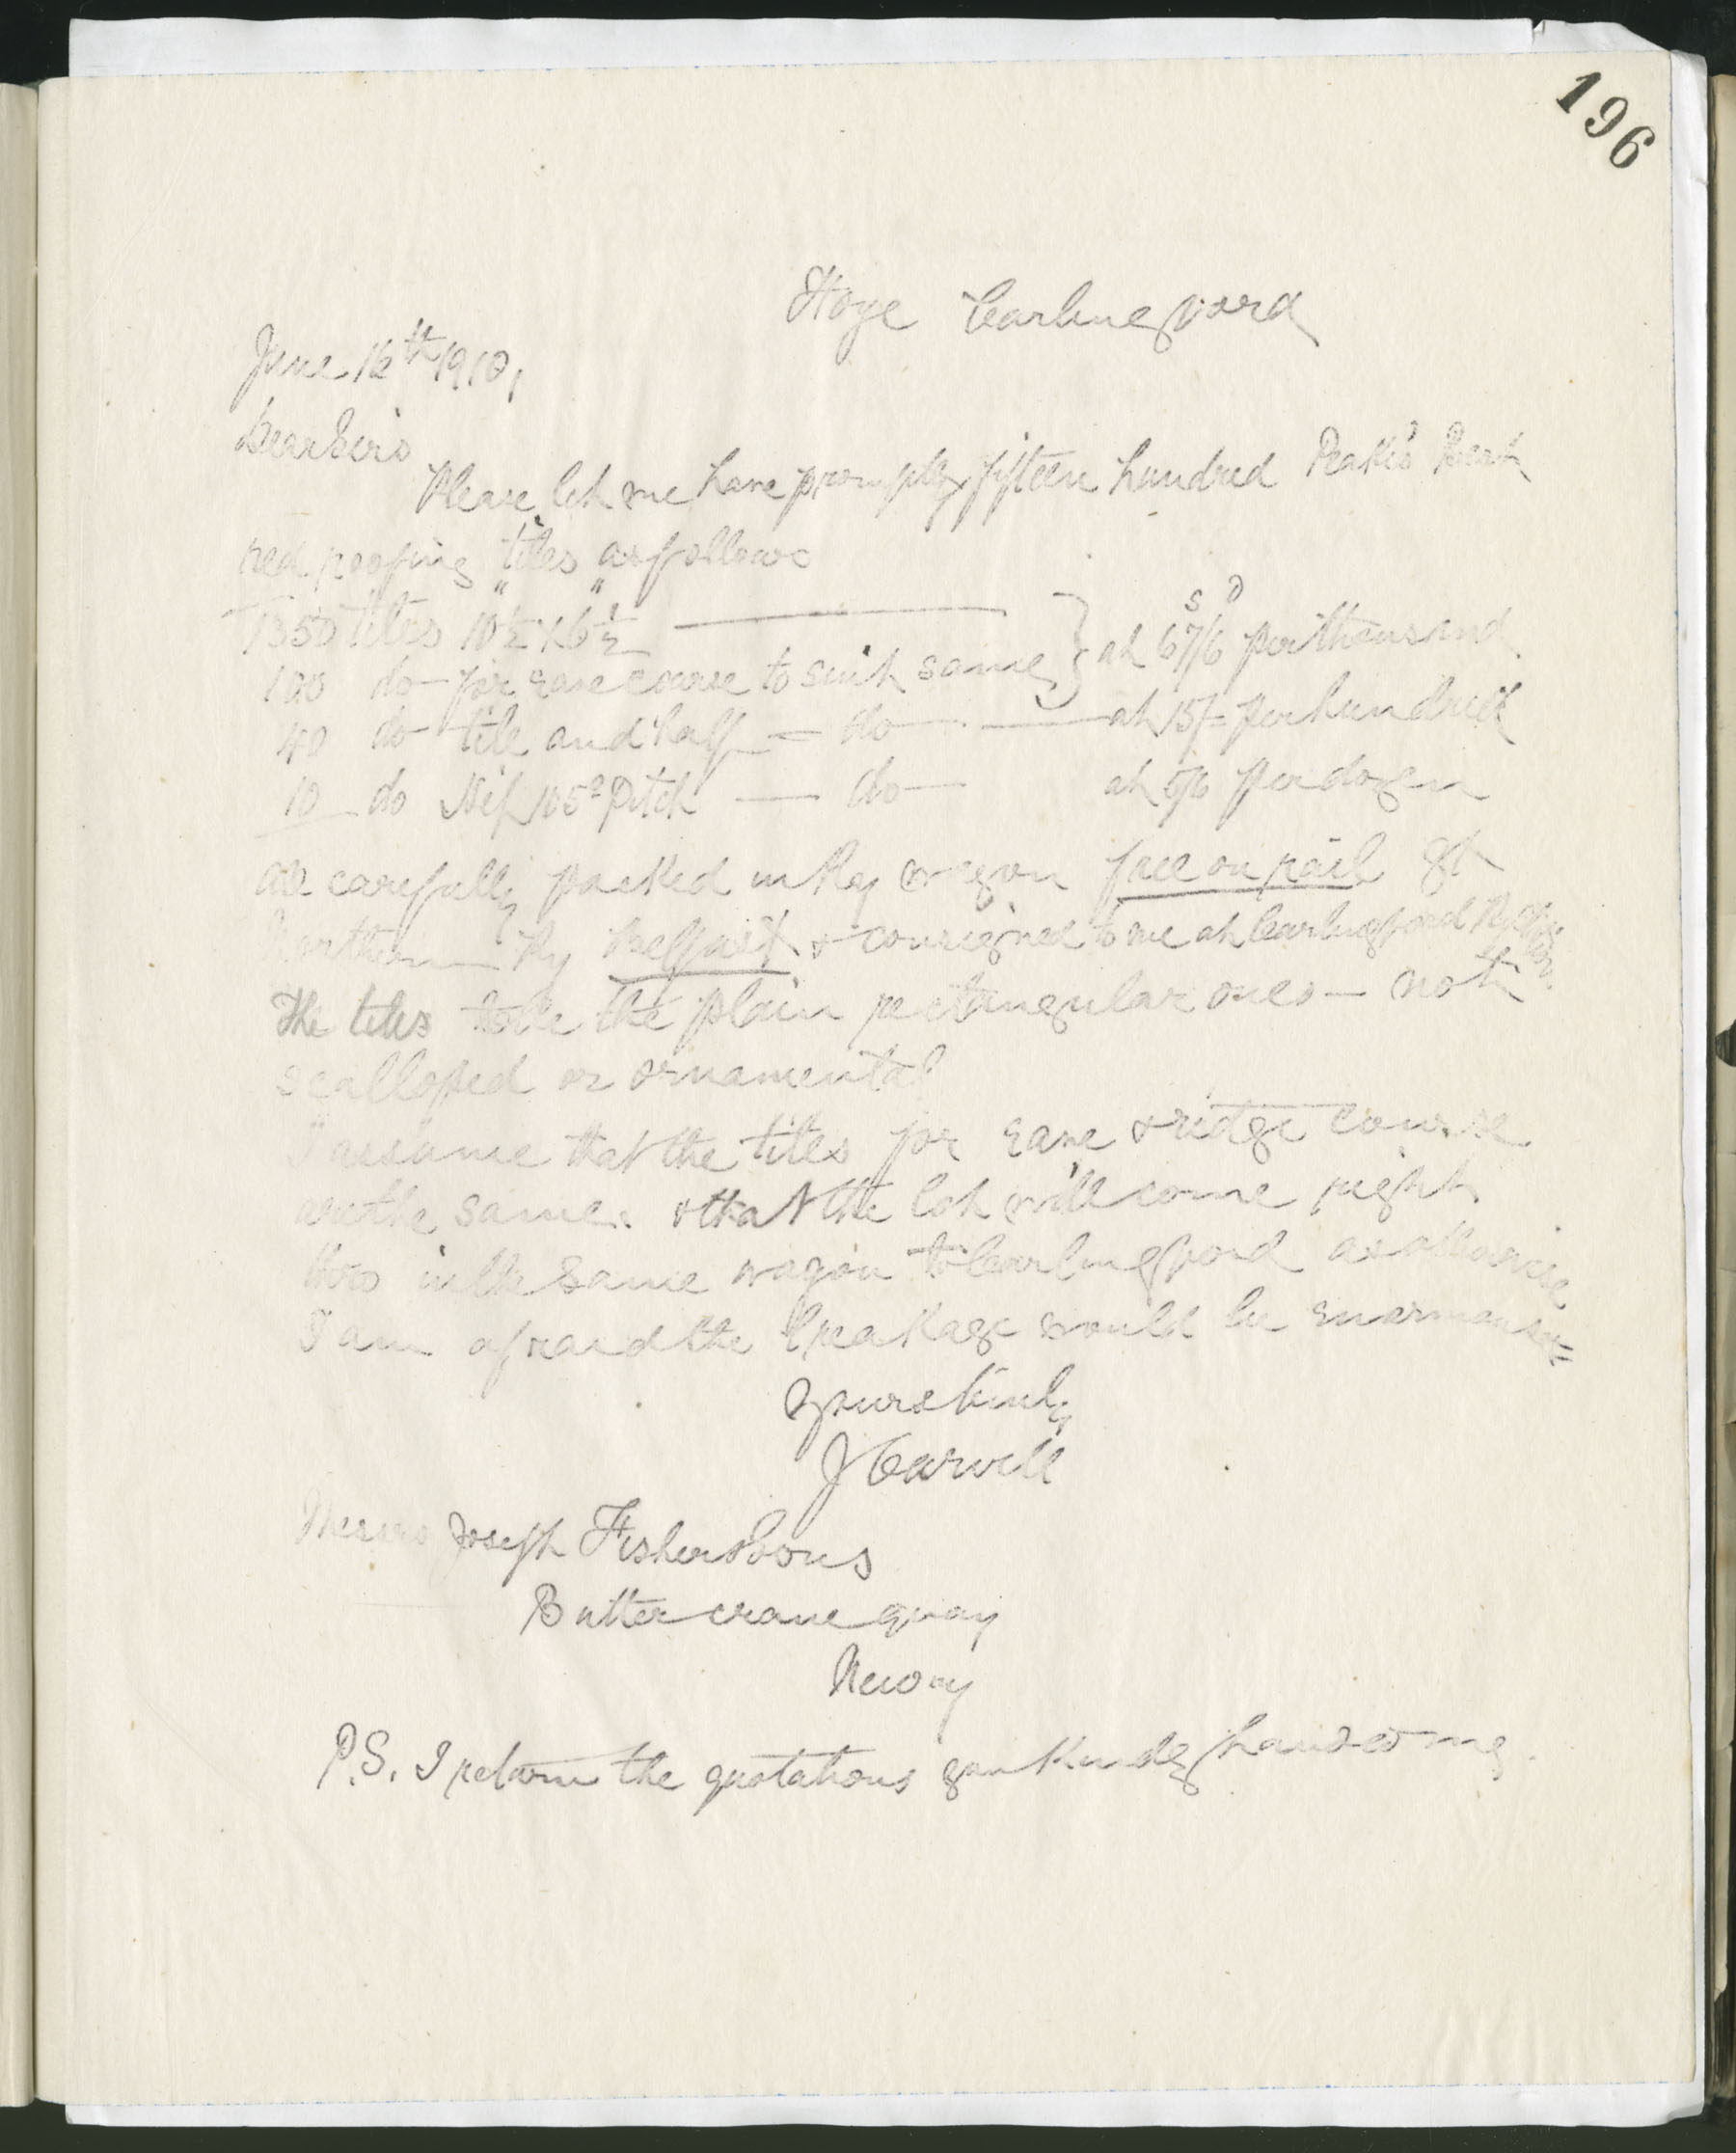 196
Hoye Carlingford
June 16th 1910,
Dear Sirs
Please let me have promptly fifteen hundred Peake's Best
red roofing tiles as follows
1350 tiles 10½" x 6½" — } at 67/6 per thousand
100 do for eave course to suit same
40 do tile and half = do — at 15/= per hundred
10 do Hip 105° Pitch — do — at 5/6 per dozen
all carefully packed in Ry wagon free on rail Gt
Northern Ry Belfast & consigned to me at Carlingford Ry Station.
The tiles to be the plain rectangular ones — not
scalloped or ornamental
I assume that the tiles for eave & ridge course
are the same. & that the lot will come right
thro in the same wagon to Carlingford as otherwise
I am afraid the breakage would be enormous =
Yours truly
J Carvill
Messrs Joseph Fisher & Sons
Butter crane quay
Newry
P.S. I return the quotations you kindly handed me.